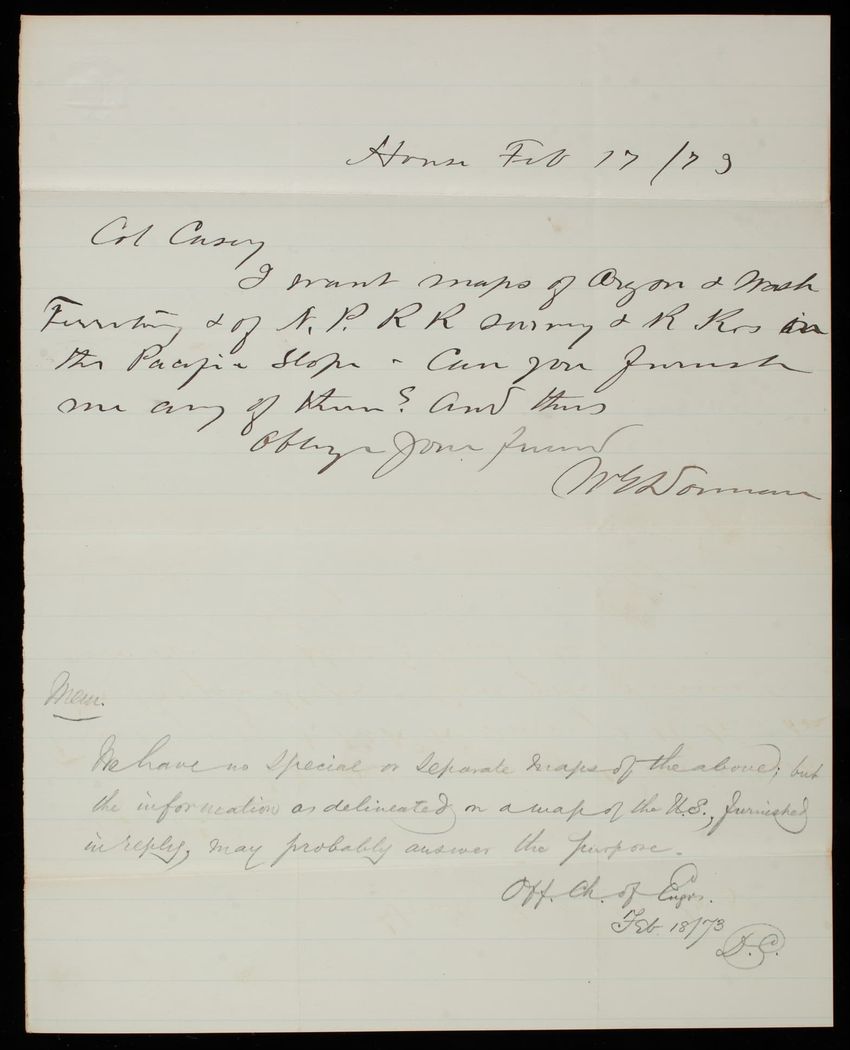 House Feb 17/73
Col Casey
I want maps of Oregon & Wash
Territory & of N. P. R R survey & R Rds in
the Pacific Slope - Can you furnish
me any of them? And thus
oblige your friend
Mem.
We have no special or separate maps of the above; but
the information as delineated on a map of the U.S., furnished
in reply, may probably answer the purpose.
Off. Ch. of Engrs.
Feb. 18/73
D.C.